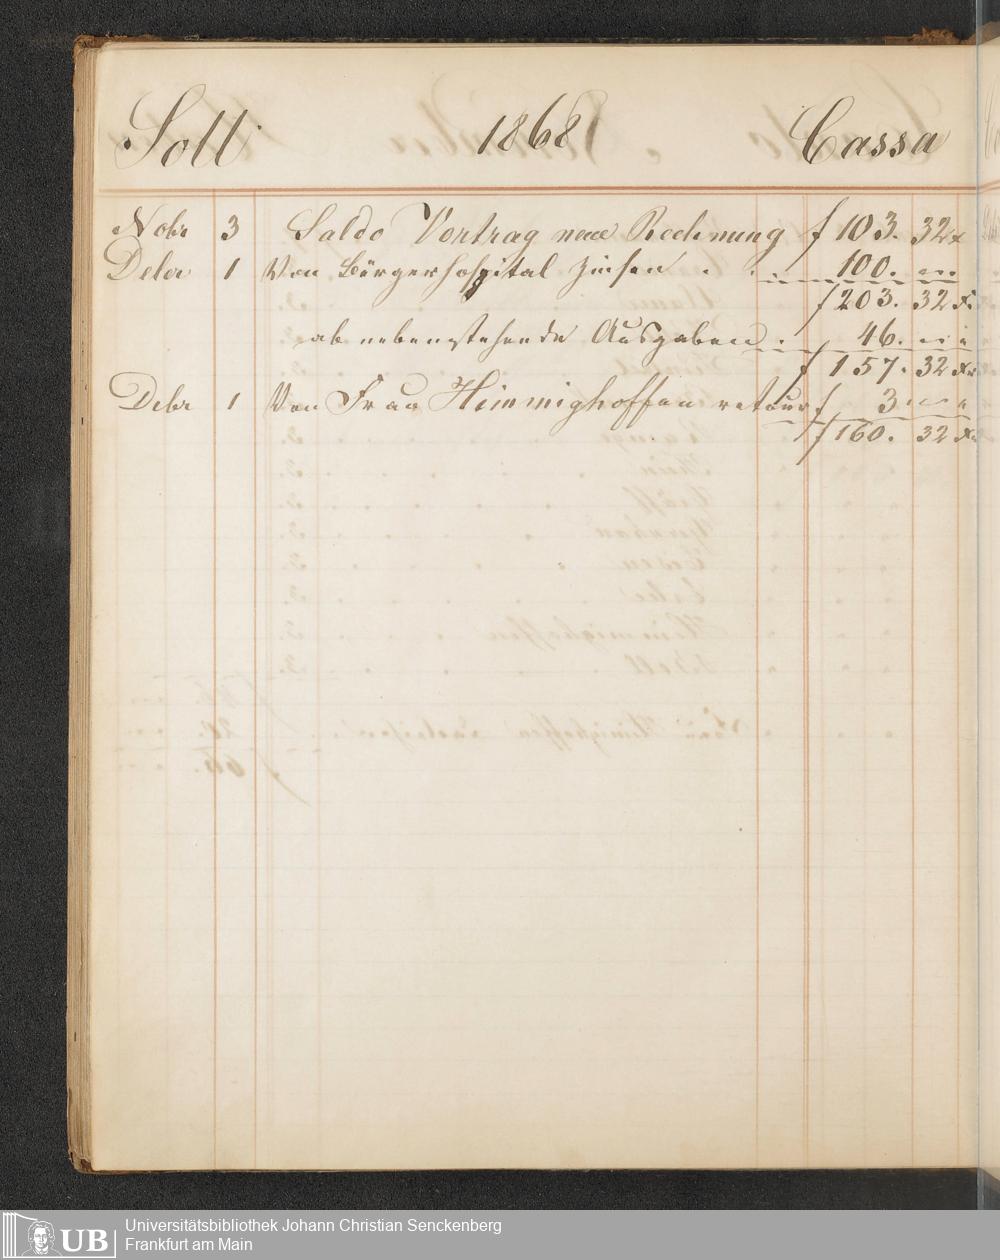 Soll 1868 Cassa
Nobr 3 Saldo Vortrag neue Rechnung f 103. 32 x
Debr 1 Von Bürgerhospital Zinsen . . 100. „ „
f 203. 32 x.
ab nebenstehende Ausgaben . 46. „ „
f 157. 32 xr
Debr 1 Von Frau Himmighoffen retour f 3 „ „
f 160. 32 xr
Universitätsbibliothek Johann Christian Senckenberg
Frankfurt am Main
UB